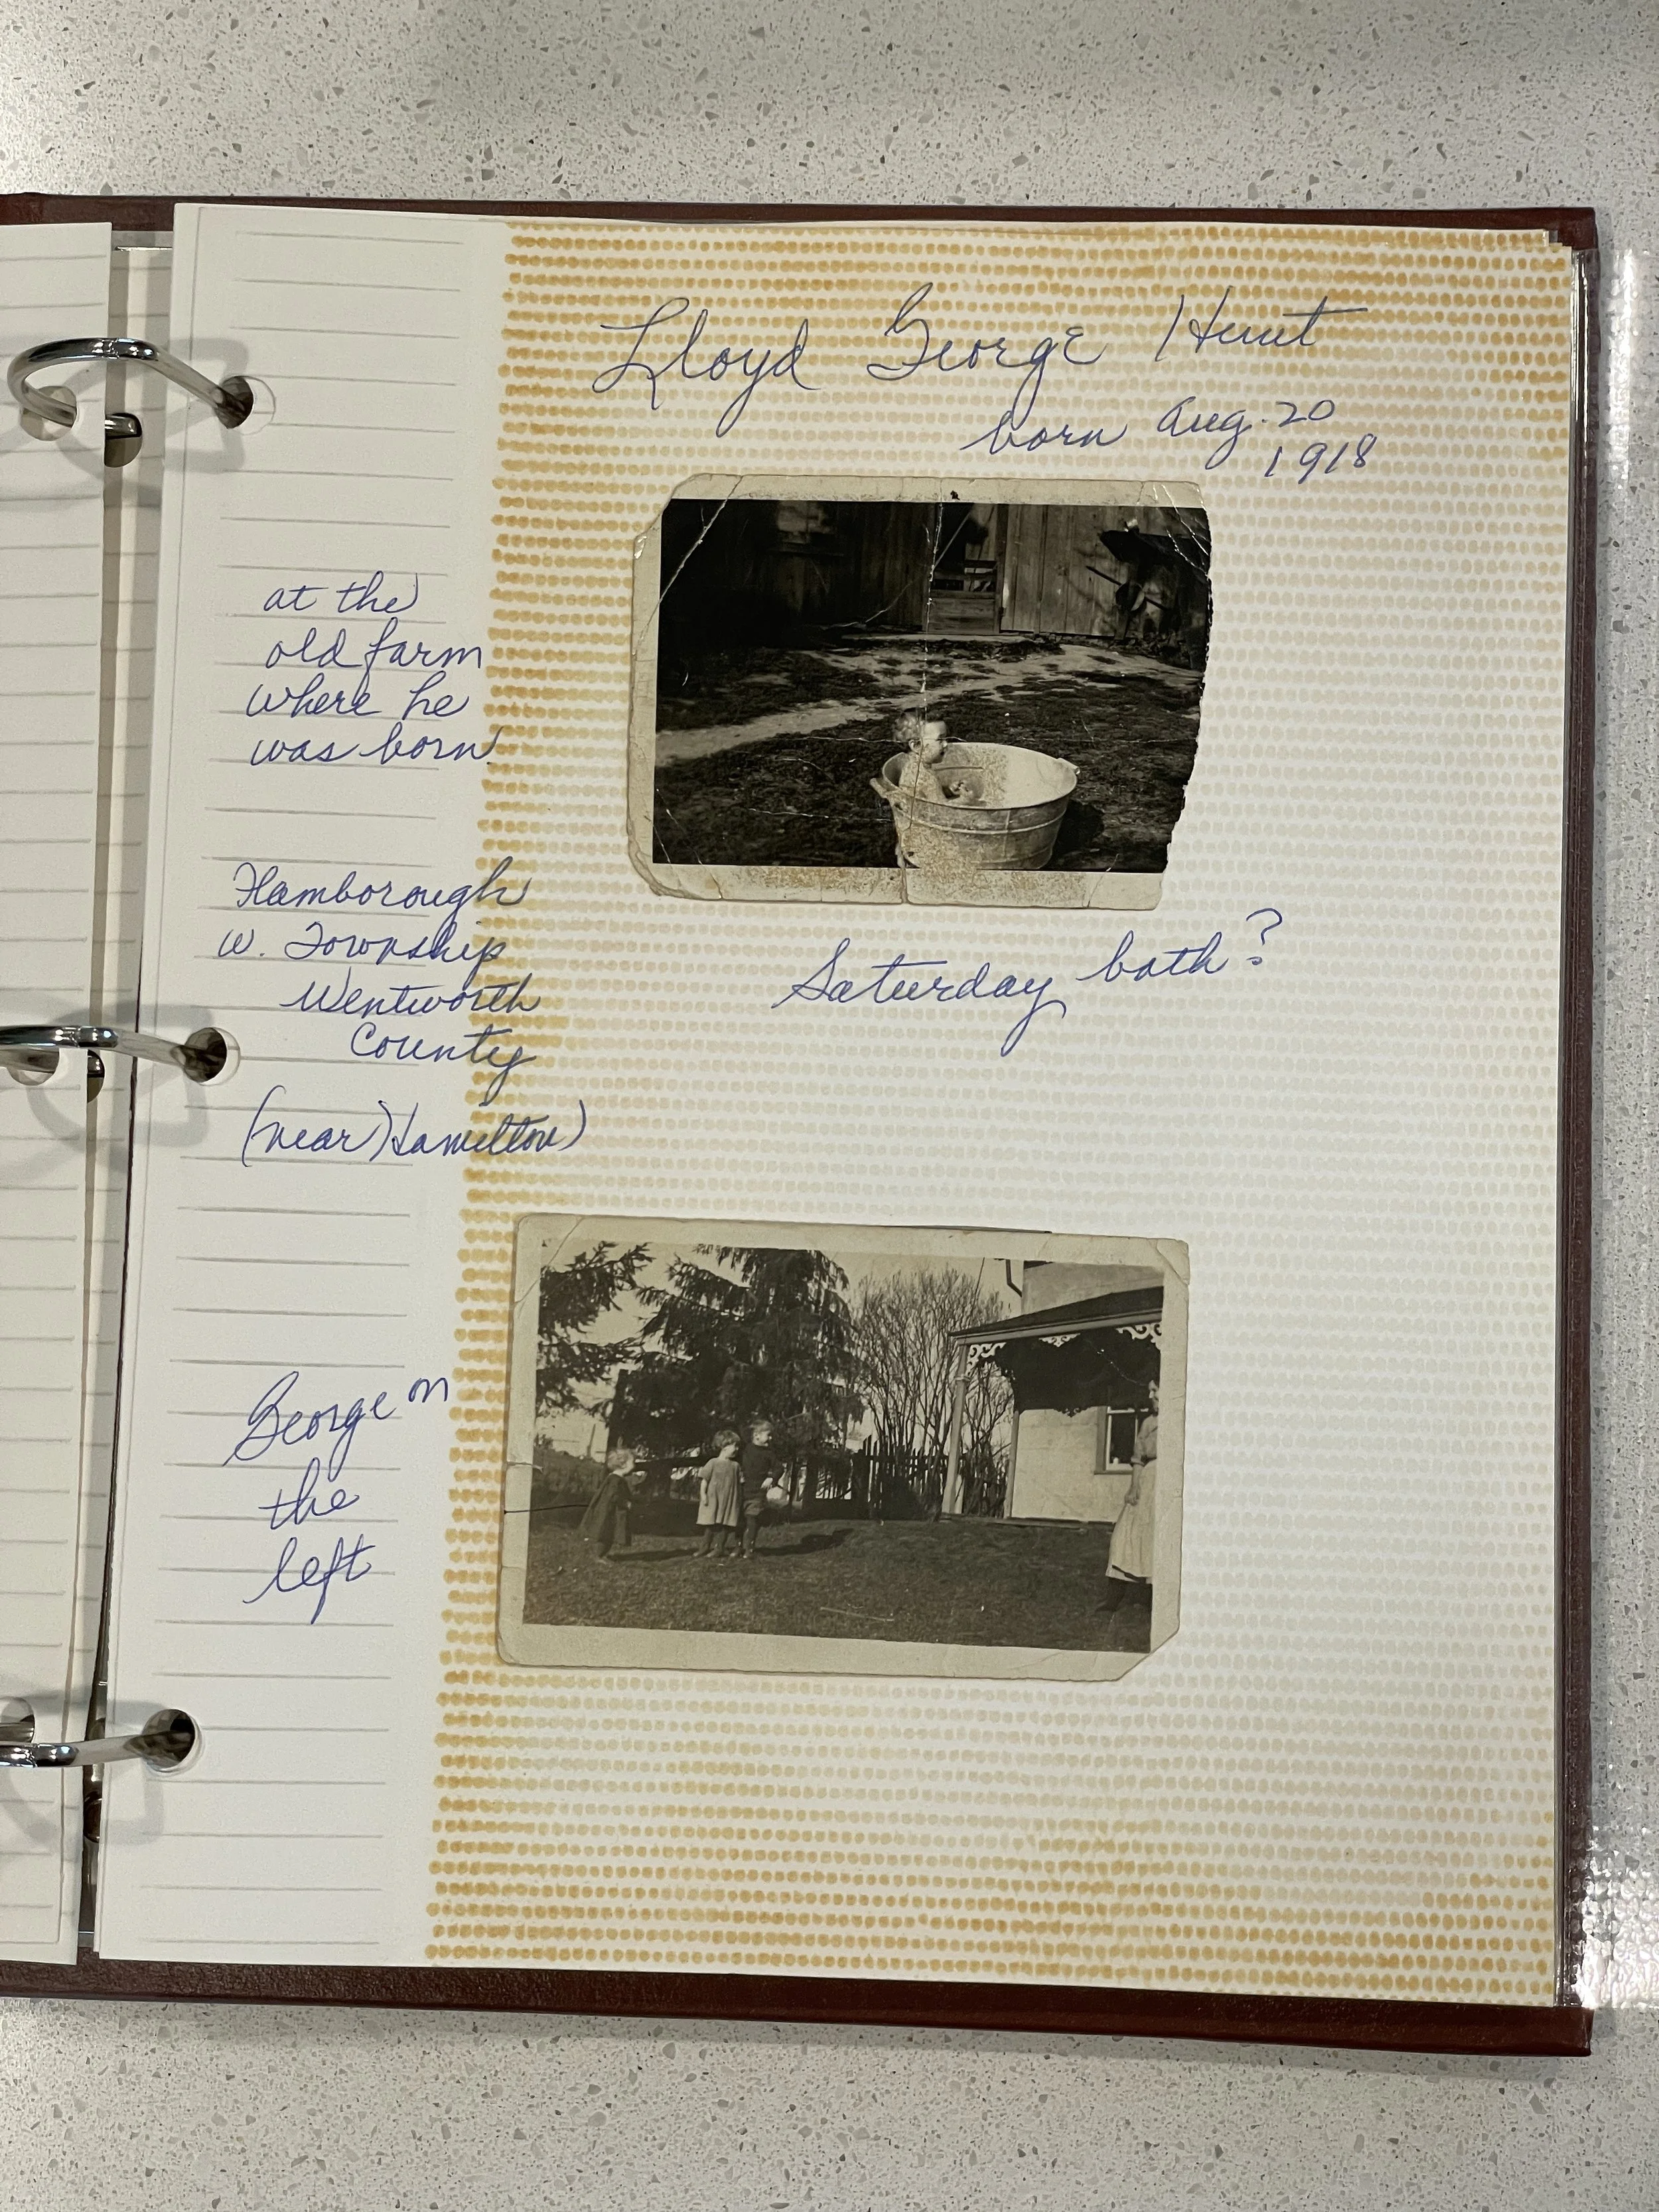 Lloyd George Hunt
born Aug. 20
1918
at the
old farm
where he
was born
Flamborough
W. Township
Wentworth
County
(near Hamilton)
Saturday bath?
George on
the
left